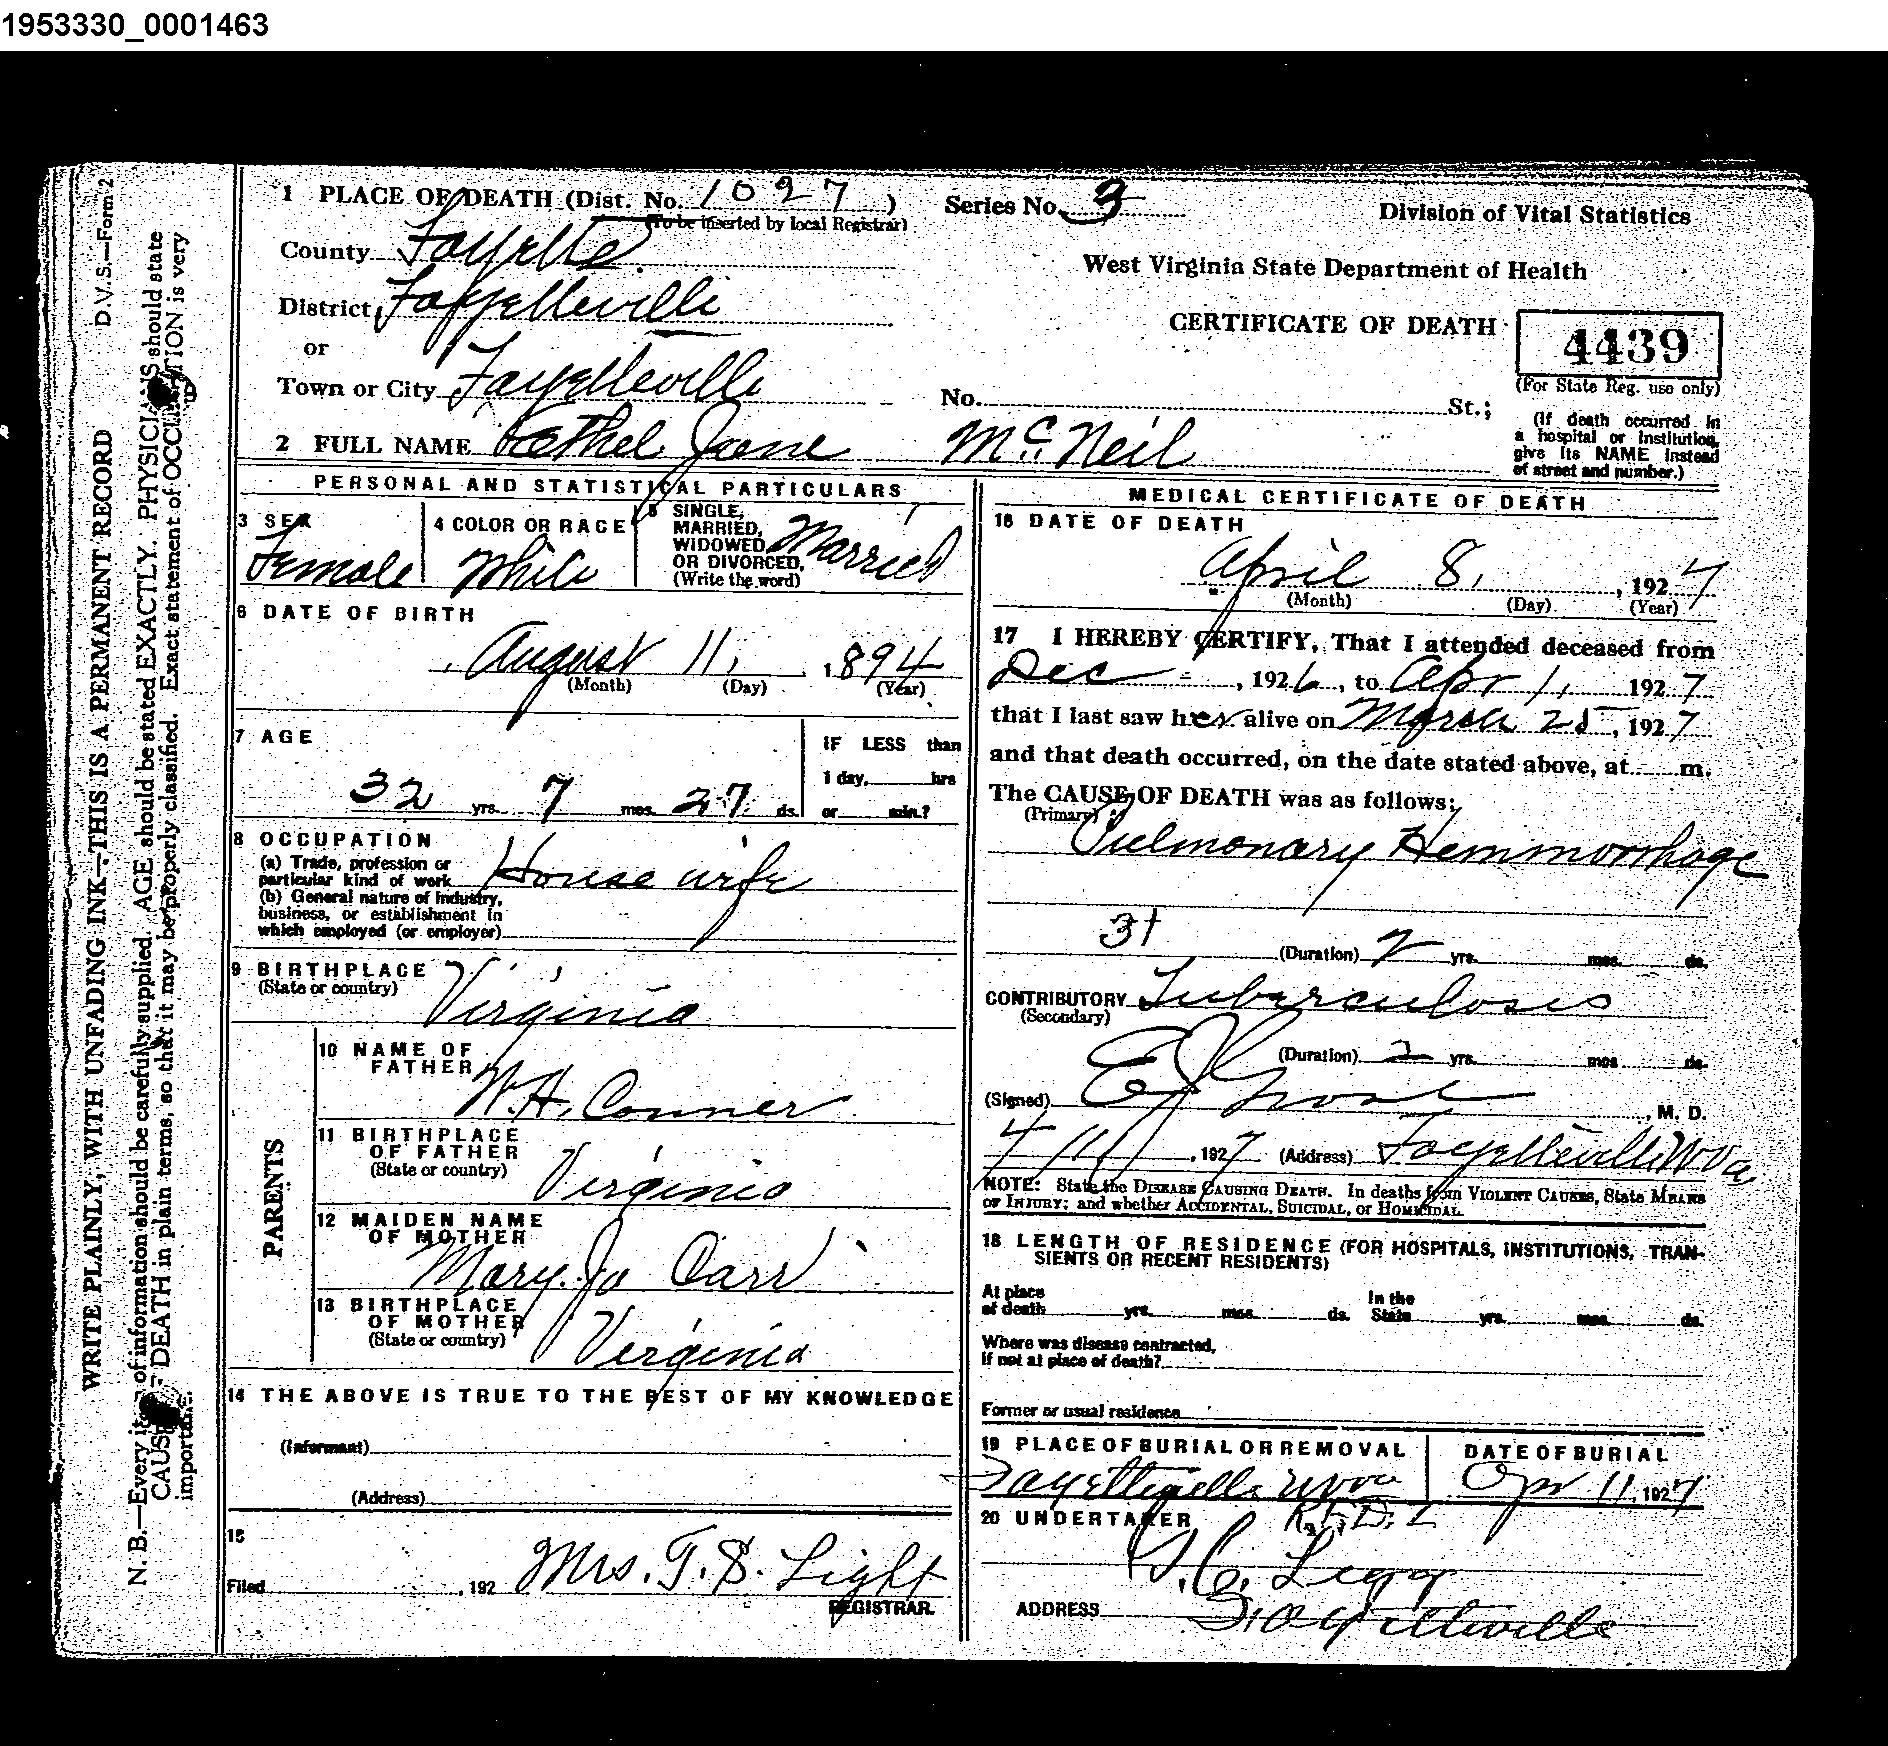 1953330_0001463
D.V.S.—Form 2
WRITE PLAINLY, WITH UNFADING INK—THIS IS A PERMANENT RECORD
N. B.—Every of information should be carefully supplied. AGE should be stated EXACTLY. PHYSICIANS should state
CAUSE DEATH in plain terms, so that it may be properly classified. Exact statement of OCCUPATION is very
important.
1 PLACE OF DEATH (Dist. No. 1027) Series No. 3 Division of Vital Statistics
(To be inserted by local Registrar)
County Fayette
West Virginia State Department of Health
District Fayetteville
CERTIFICATE OF DEATH 4439
or
(For State Reg. use only)
Town or City Fayetteville No. St.;
(If death occurred in
a hospital or institution,
give its NAME instead
of street and number.)
2 FULL NAME Ethel Jane McNeil
PERSONAL AND STATISTICAL PARTICULARS
3 SEX
Female
4 COLOR OR RACE
White
5 SINGLE,
MARRIED,
WIDOWED,
OR DIVORCED,
(Write the word)
Married
6 DATE OF BIRTH
August 11, 1894
(Month) (Day) (Year)
7 AGE
32 yrs. 7 mos. 27 ds.
IF LESS than
1 day, hrs
or min.?
8 OCCUPATION
(a) Trade, profession or
particular kind of work House wife
(b) General nature of Industry,
business, or establishment in
which employed (or employer)
9 BIRTHPLACE
(State or country)
Virginia
PARENTS
10 NAME OF
FATHER
W. H. Conner
11 BIRTHPLACE
OF FATHER
(State or country)
Virginia
12 MAIDEN NAME
OF MOTHER
Mary Jo Carr
13 BIRTHPLACE
OF MOTHER
(State or country)
Virginia
14 THE ABOVE IS TRUE TO THE BEST OF MY KNOWLEDGE
(Informant)
(Address)
15
Filed , 192 Mrs. T. S. Light
REGISTRAR.
MEDICAL CERTIFICATE OF DEATH
16 DATE OF DEATH
April 8, 1927
(Month) (Day) (Year)
17 I HEREBY CERTIFY, That I attended deceased from
Dec , 1926, to Apr 1, 1927
that I last saw her alive on March 25, 1927
and that death occurred, on the date stated above, at m.
The CAUSE OF DEATH was as follows:
(Primary)
Pulmonary Hemmorrhage
31
(Duration) 2 yrs. mos. ds.
CONTRIBUTORY Tuberculosis
(Secondary)
(Duration) 2 yrs. mos. ds.
(Signed) , M. D.
4/11/, 1927 (Address) Fayetteville W Va
NOTE: State the DISEASE CAUSING DEATH. In deaths from VIOLENT CAUSES, State MEANS
OF INJURY; and whether ACCIDENTAL, SUICIDAL, or HOMICIDAL.
18 LENGTH OF RESIDENCE (FOR HOSPITALS, INSTITUTIONS, TRAN-
SIENTS OR RECENT RESIDENTS)
At place
of death yrs. mos. ds.
In the
State yrs. mos. ds.
Where was disease contracted,
if not at place of death?
Former or usual residence
19 PLACE OF BURIAL OR REMOVAL
Fayetteville W Va
R.F.D. 2
DATE OF BURIAL
Apr 11, 1927
20 UNDERTAKER
Legg
ADDRESS Fayetteville